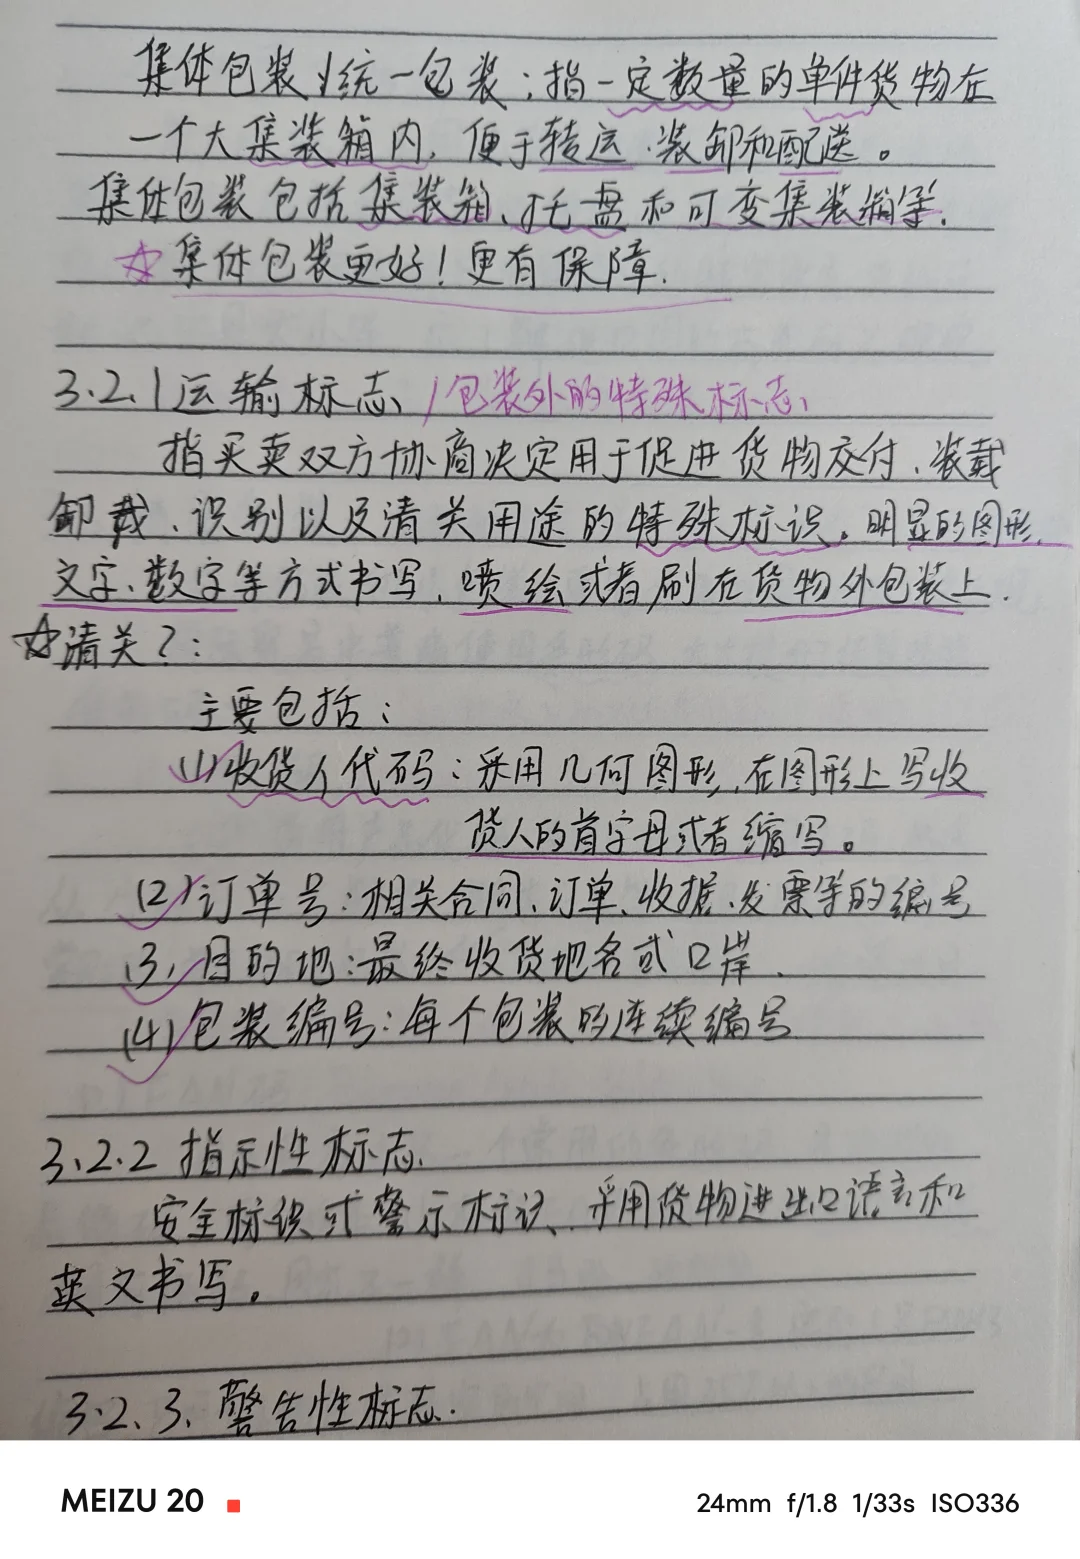 集体包装/统一包装：指一定数量的单件货物在
一个大集装箱内，便于转运、装卸和配送。
集体包装包括集装箱、托盘和可变集装箱等.
☆集体包装更好！更有保障.
3.2.1运输标志 / 包装外的特殊标志
指买卖双方协商决定用于促进货物交付、装载
卸载、识别以及清关用途的特殊标识。明显的图形、
文字、数字等方式书写，喷绘或者刷在货物外包装上.
☆清关？：
主要包括：
(1)收货人代码：采用几何图形，在图形上写收
货人的首字母或者缩写。
(2)订单号：相关合同、订单、收据、发票等的编号
(3)目的地：最终收货地名或口岸.
(4)包装编号：每个包装的连续编号
3.2.2 指示性标志
安全标识或警示标识、采用货物进出口语言和
英文书写。
3.2.3、警告性标志.
MEIZU 20
24mm f/1.8 1/33s ISO336